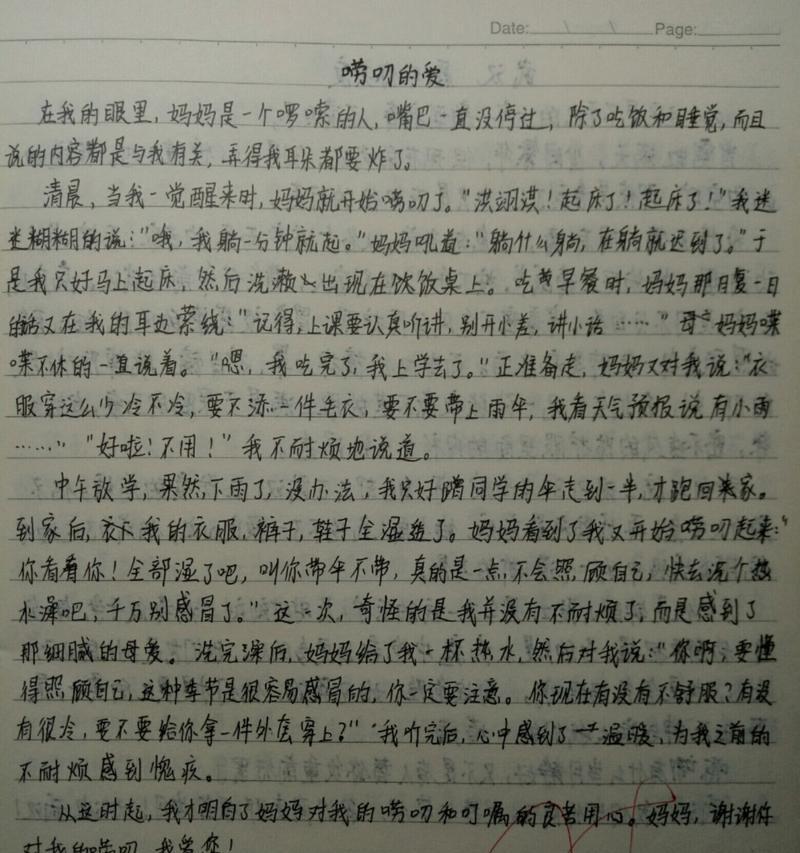 Date: / / Page:
唠叨的爱
在我的眼里,妈妈是一个啰嗦的人,嘴巴一直没停过,除了吃饭和睡觉,而且
说的内容都是与我有关,弄得我耳朵都要炸了。
清晨,当我一觉醒来时,妈妈就开始唠叨了。"洪翊洪!起床了!起床了!"我迷
迷糊糊的说:"哦,我躺一分钟就起。"妈妈吼道:"躺什么躺,在躺就迟到了。"于
是我只好马上起床,然后洗漱出现在饮饭桌上。吃早餐时,妈妈那日复一日
的话又在我的耳边萦绕:"记得,上课要认真听讲,别开小差,讲小话……"妈妈喋
喋不休的一直说着。"嗯,我吃完了,我上学去了。"正准备走,妈妈又对我说:"衣
服穿这么少冷不冷,要不添一件毛衣,要不要带上雨伞,我看天气预报说有小雨
……""好啦!不用!"我不耐烦地说道。
中午放学,果然,下雨了,没办法,我只好蹭同学的伞走到一半,才跑回来家。
到家后,我的衣服,裤子,鞋子全湿透了。妈妈看到了我又开始唠叨起来:"
你看看你!全部湿了吧,叫你带伞不带,真的是一点不会照顾自己,快去洗个热
水澡吧,千万别感冒了。"这一次,奇怪的是我并没有不耐烦了,而是感到了
那细腻的母爱。洗完澡后,妈妈给了我一杯热水,然后对我说:"你啊,要懂
得照顾自己,这种季节是很容易感冒的,你一定要注意。你现在有没有不舒服?有没
有很冷,要不要给你拿一件外套穿上?"我听完后,心中感到了一温暖,为我之前的
不耐烦感到愧疚。
从这时起,我才明白了妈妈对我的唠叨和叮嘱的良苦用心。妈妈,谢谢你
对我的唠叨,我爱您!